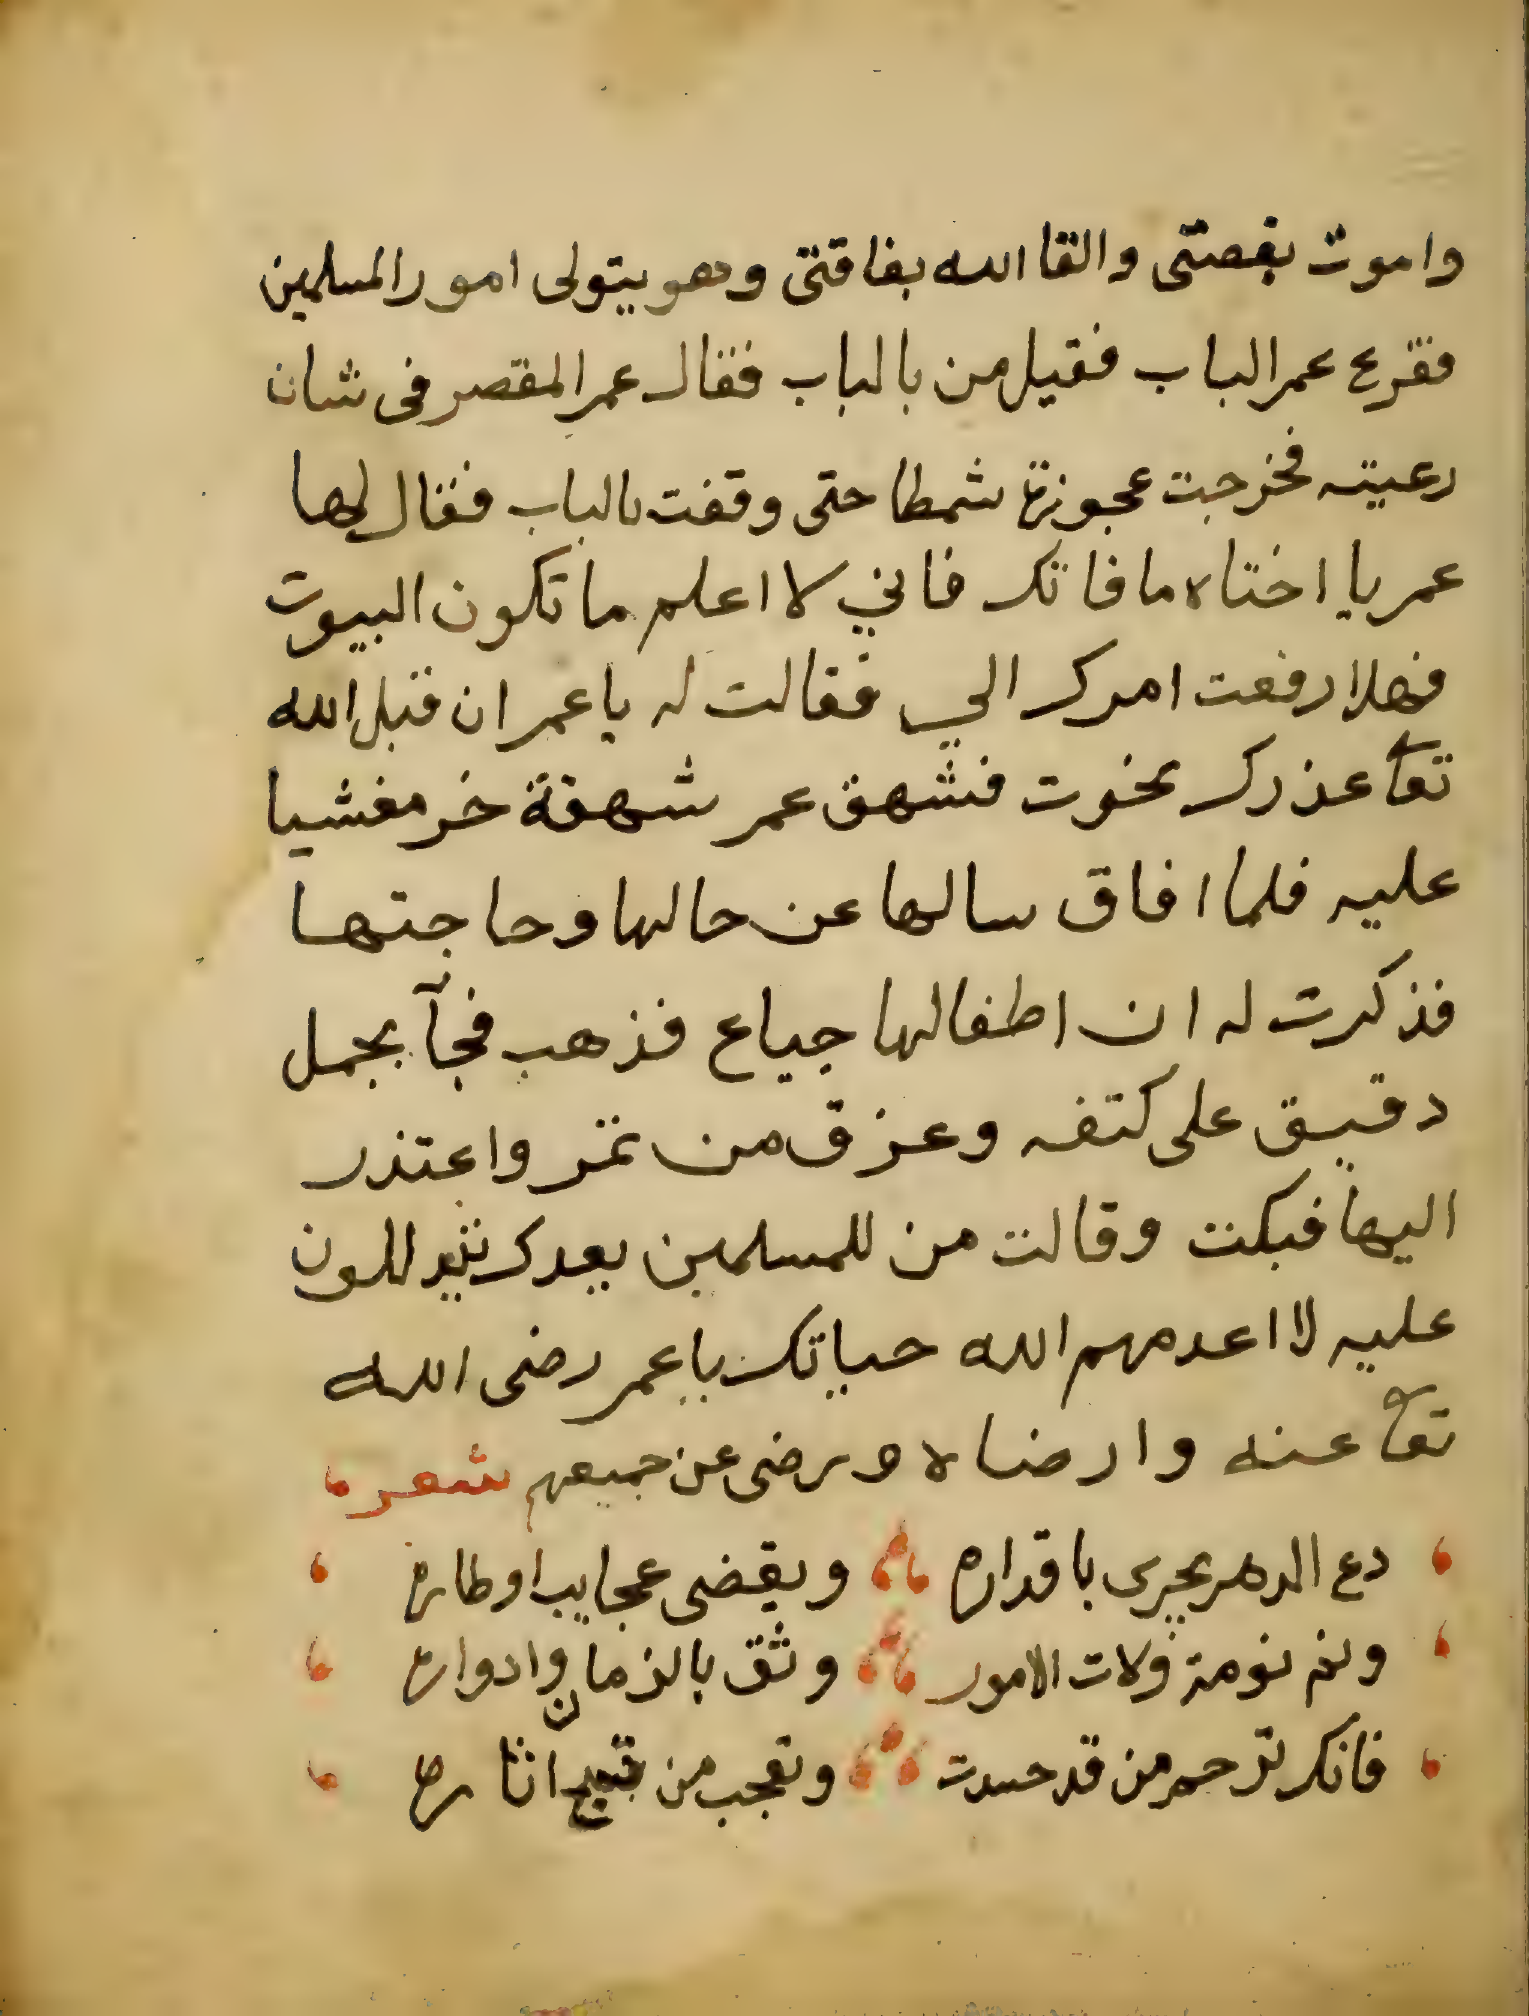 واموت بغصتى والقا الله بفاقتى وهو يتولى امور المسلمين
فقرع عمر الباب فقيل من بالباب فقال عمر المقصر فى شان
رعيته فخرجت عجوزة شمطا حتى وقفت بالباب فقال لها
عمر يا اختاه ما فاتك فاني لا اعلم ما تكون البيوت
فهلا رفعت امرك الي فقالت له يا عمر ان قبل الله
تعا عذرك نجوت فشهق عمر شهقة خر مغشيا
عليه فلما افاق سالها عن حالها وحاجتها
فذكرت له ان اطفالها جياع فذهب فجآ بحمل
دقيق على كتفه وعزق من تمر واعتذر
اليها فبكت وقالت من للمسلمين بعدك
عليه لا اعدمهم الله حياتك يا عمر رضى الله
تعا عنه وارضاه ورضى عن جميعهم شعر
دع الدهر يجرى باقداره ويقضى عجايب اوطاره
ونم نومة ولات الامور وثق بالزمان وادواره
فانك ترحم من قد حسدت وتعجب من قبيح اثاره